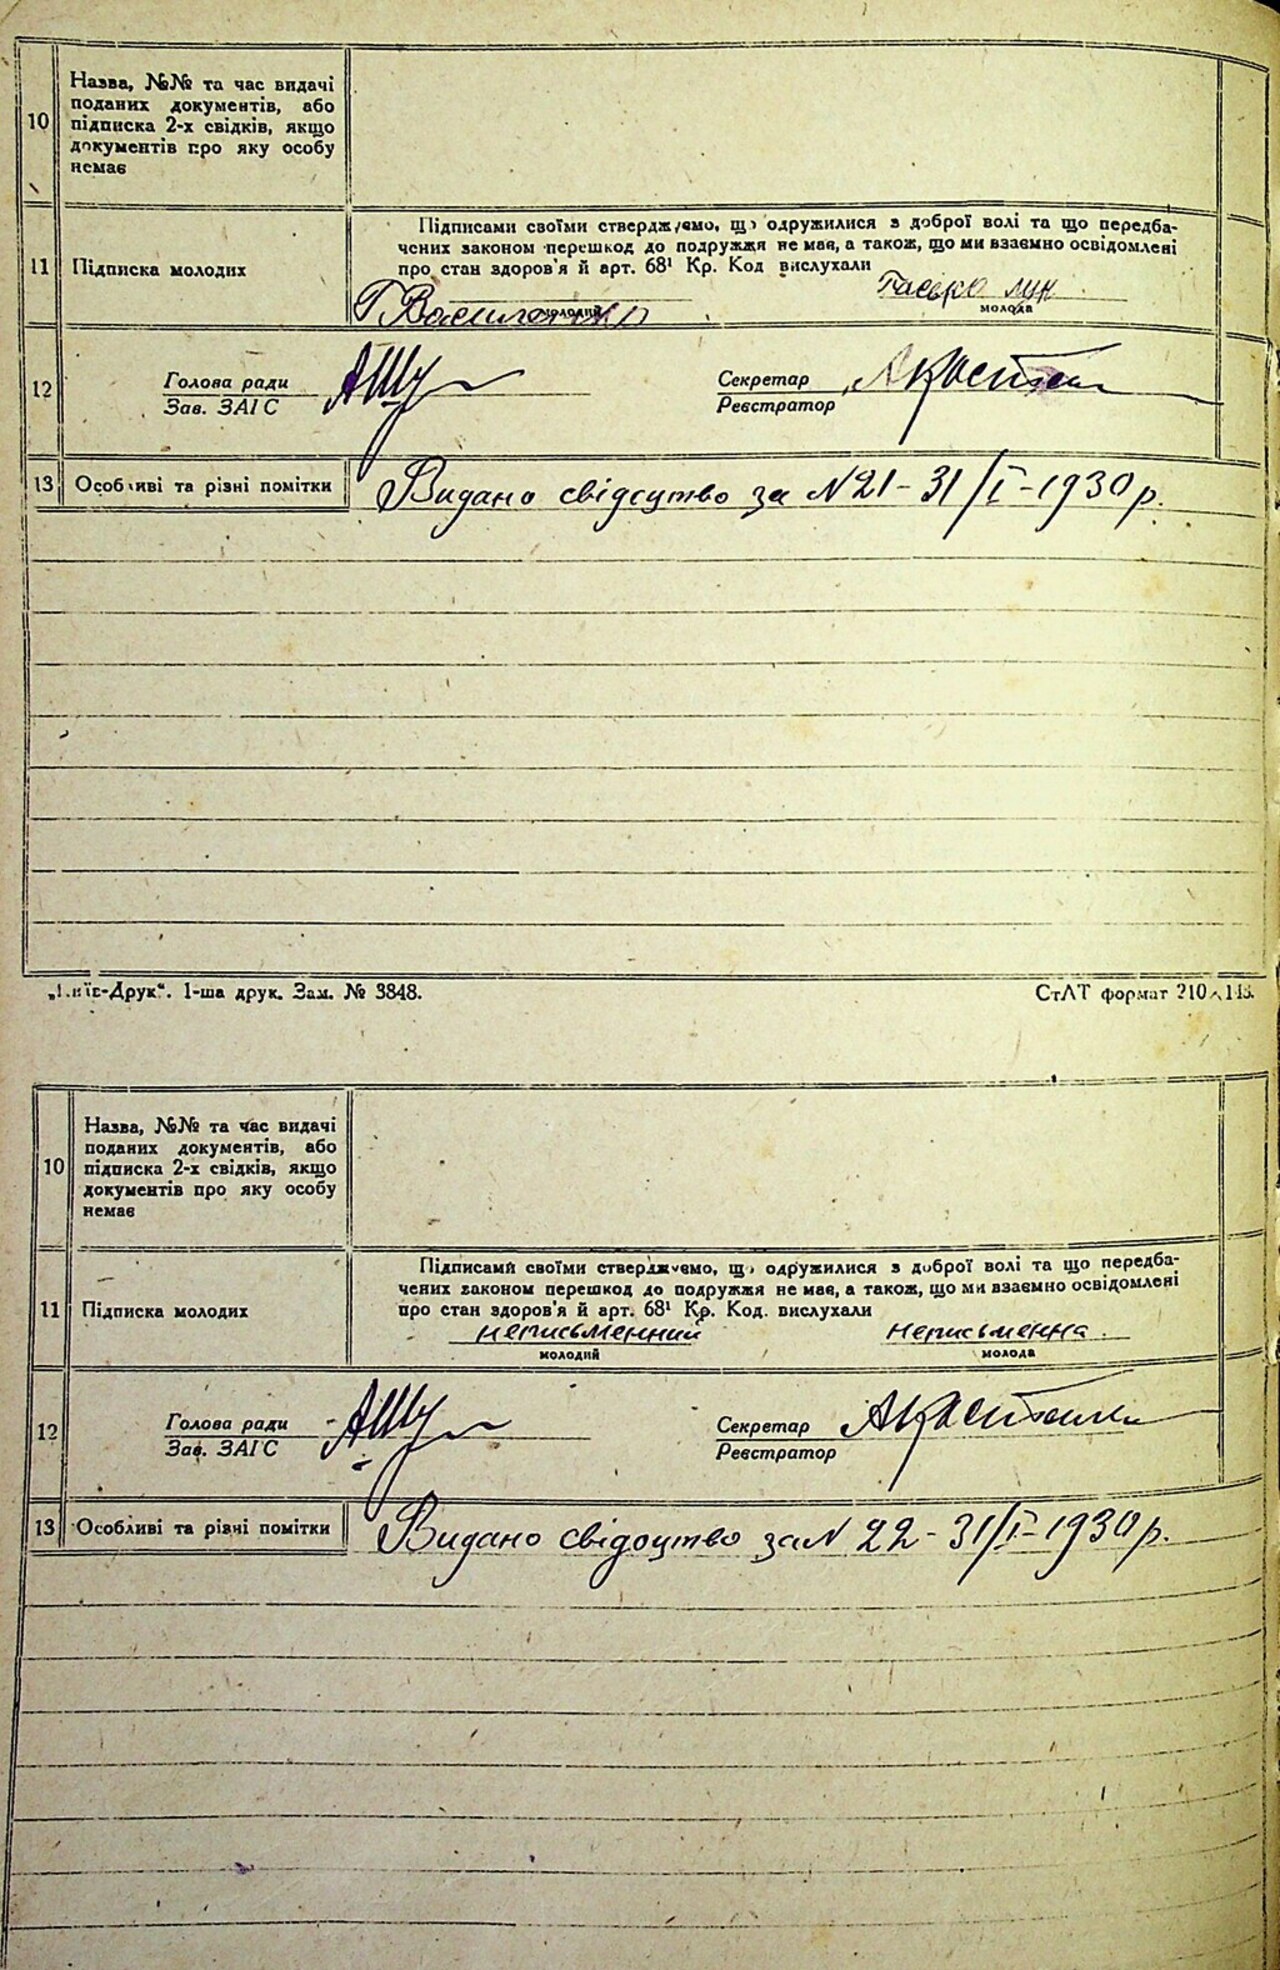 10
Назва, №№ та час видачі
поданих документів, або
підписка 2-х свідків, якщо
документів про яку особу
немає
11
Підписка молодих
Підписами своїми стверджуємо, що одружилися з доброї волі та що передба-
чених законом перешкод до подружжя не має, а також, що ми взаємно освідомлені
про стан здоров'я й арт. 68¹ Кр. Код вислухали
молодий
молода
12
Голова ради
Зав. ЗАГС
Секретар
Реєстратор
13
Особливі та різні помітки
Видано свідоцтво за N 21 - 31/I - 1930 р.
„Київ-Друк“. 1-ша друк. Зам. № 3848.
СтАТ формат 210×148.
10
Назва, №№ та час видачі
поданих документів, або
підписка 2-х свідків, якщо
документів про яку особу
немає
11
Підписка молодих
Підписами своїми стверджуємо, що одружилися з доброї волі та що передба-
чених законом перешкод до подружжя не має, а також, що ми взаємно освідомлені
про стан здоров'я й арт. 68¹ Кр. Код. вислухали
неписьменний
неписьменна.
молодий
молода
12
Голова ради
Зав. ЗАГС
Секретар
Реєстратор
13
Особливі та різні помітки
Видано свідоцтво за N 22 - 31/I - 1930 р.